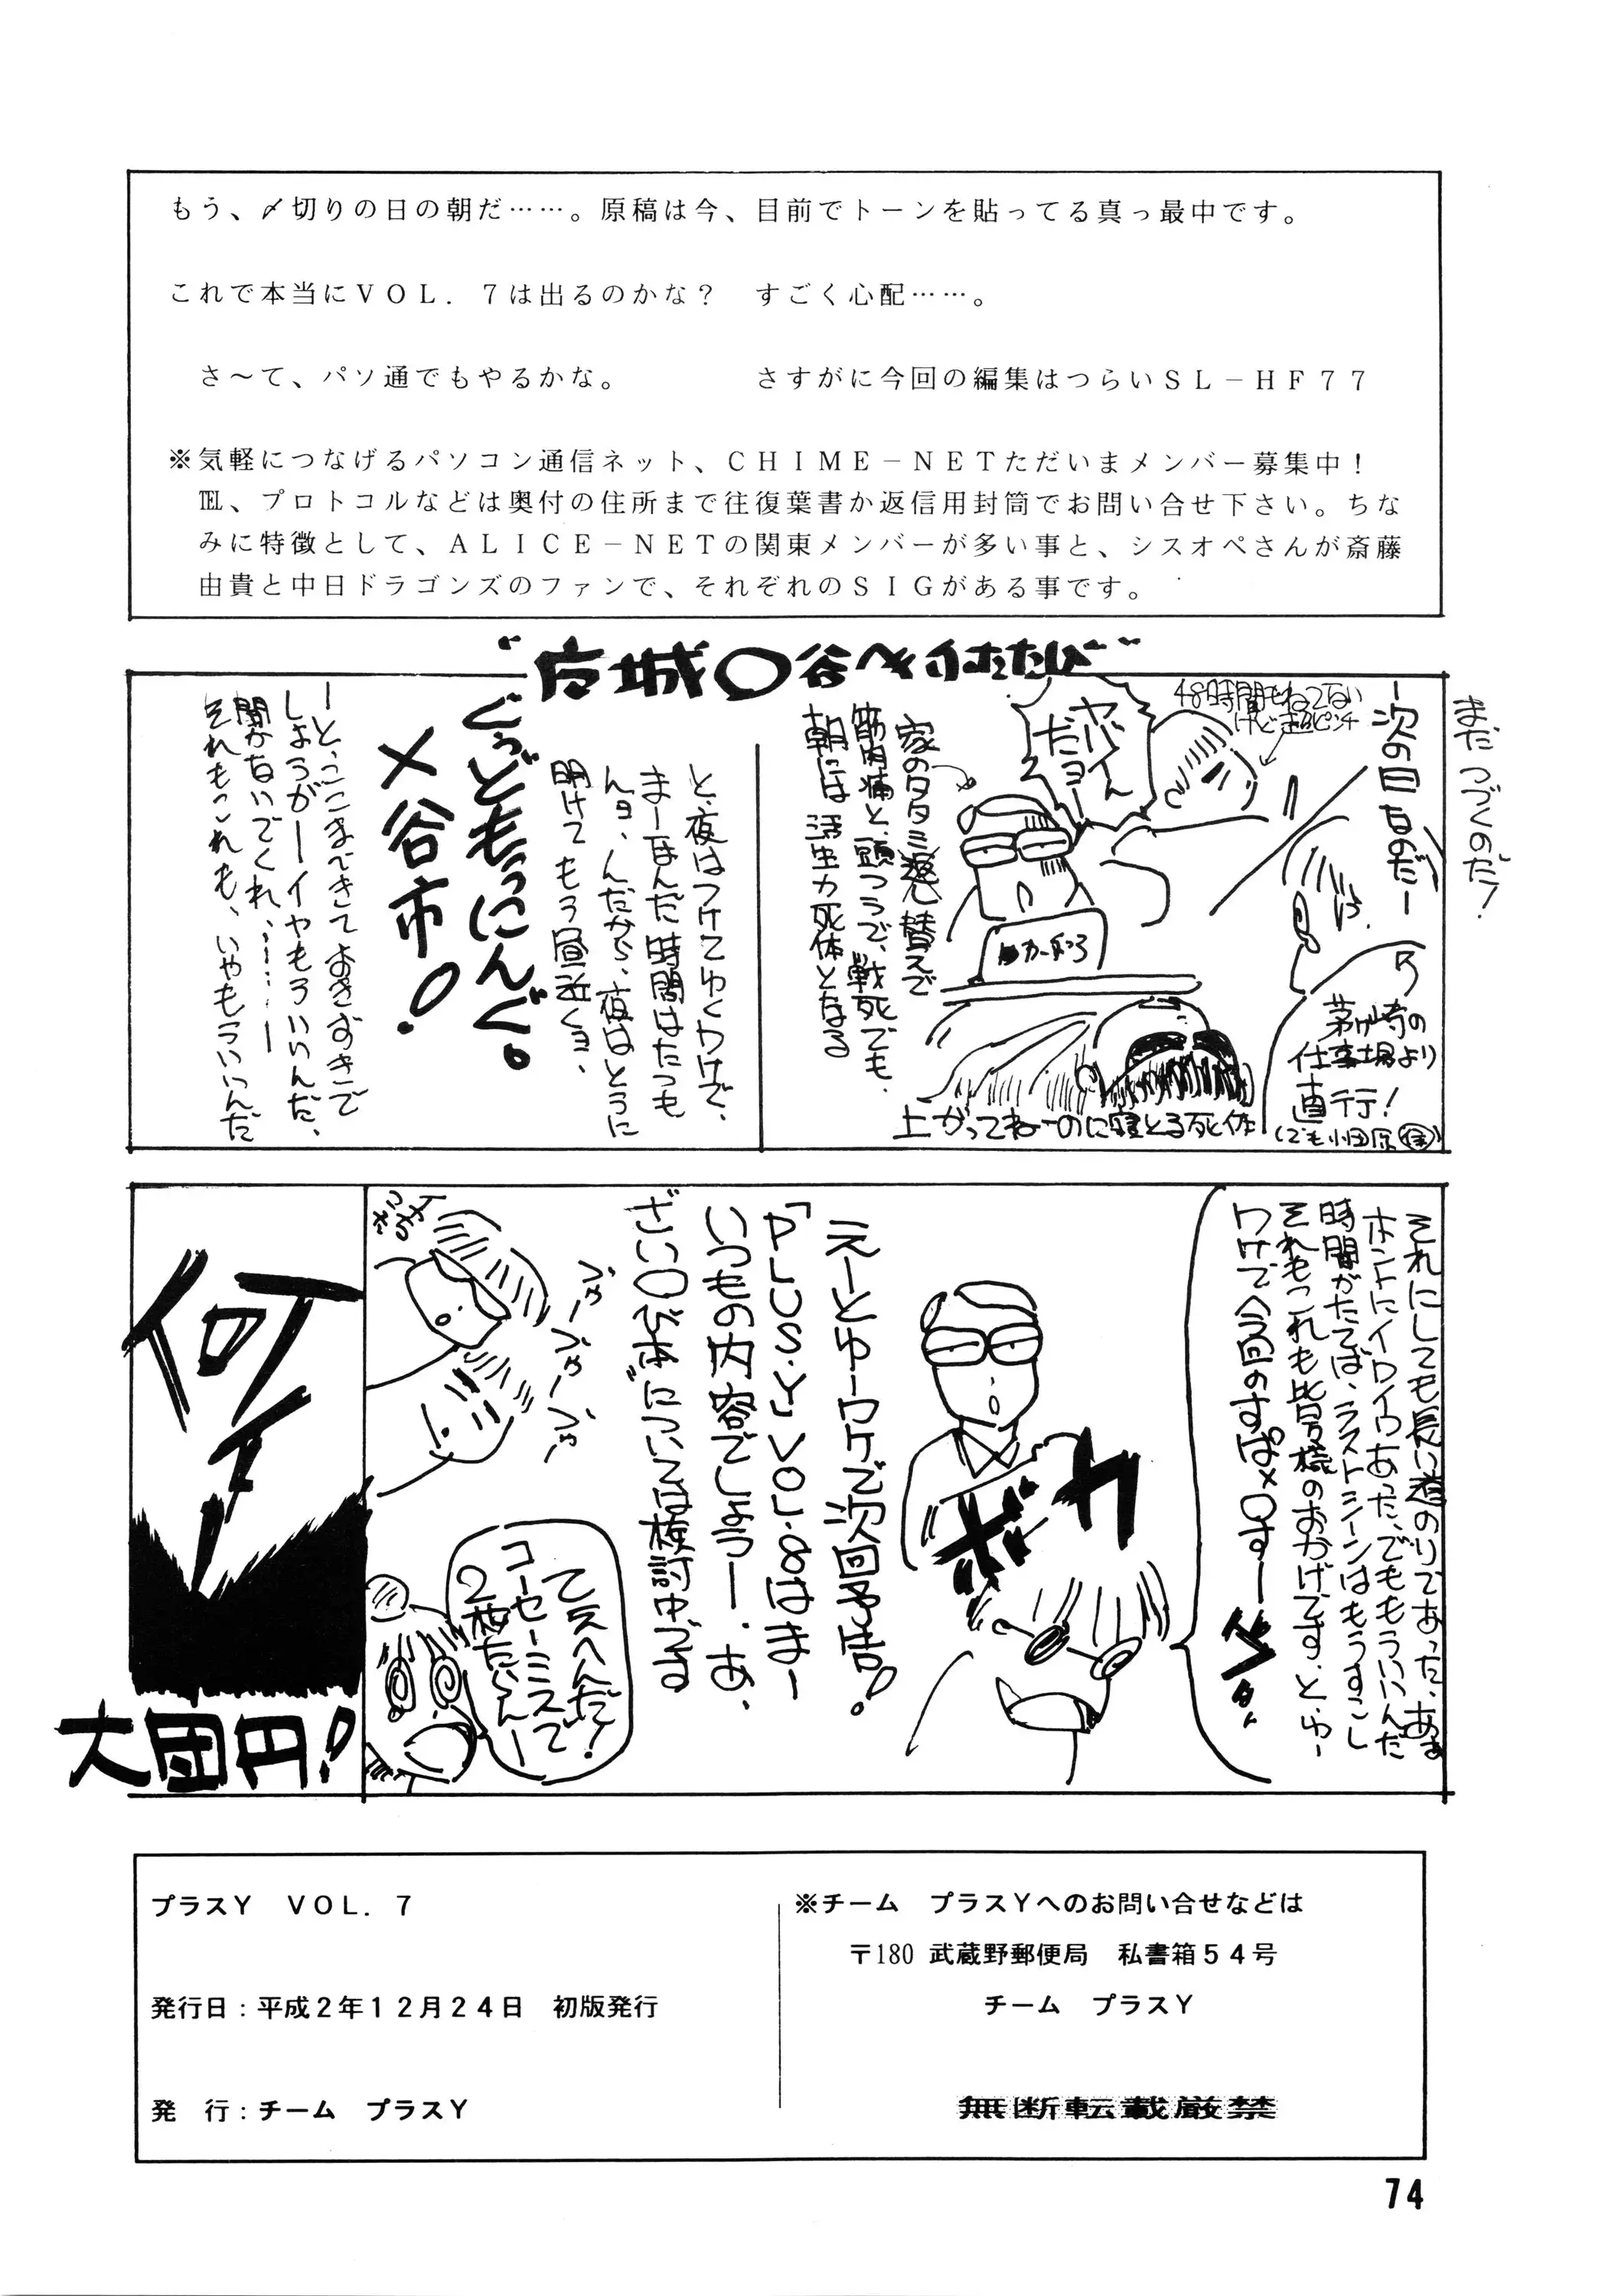 もう、〆切りの日の朝だ……。原稿は今、目前でトーンを貼ってる真っ最中です。
これで本当にVOL.7は出るのかな?　すごく心配……。
さ~て、パソ通でもやるかな。　さすがに今回の編集はつらいSL-HF77
※気軽につなげるパソコン通信ネット、CHIME-NETただいまメンバー募集中!
℡、プロトコルなどは奥付の住所まで往復葉書か返信用封筒でお問い合せ下さい。ちな
みに特徴として、ALICE-NETの関東メンバーが多い事と、シスオペさんが斎藤
由貴と中日ドラゴンズのファンで、それぞれのSIGがある事です。
まだつづくのだ!
ー次の日なのだー
48時間もねてない
けど超ピンチ
ヤバイん
だヨー
茅ヶ崎の
仕事場より
直行!
家のタタミ返し替えで
筋肉痛と、頭つうで、戦死でも、
朝には活生力死体となる
上がってねーのに寝とる死体
と、夜はつけてゆくワけで、
まーほんだ時間はたつも
んョ、んだから、夜はとうに
明けてもう昼近くョ、
ぐっどもっにんぐ。
メ谷市!
ーと、ここまできておきずきで
しょうがーイヤもういいんだ、
聞かないでくれ、……ー
それもこれも、いやもういいんだ
それにしても長い道のりであった、ああ
ホントにイロイロあった、でももういいんだ
時間がたてば、ラストシーンはもうすこし
それもこれも皆様のおかげです、とゆー
ワけで今回のすぱ×○すー
ボカ
えーとゆーワケで次回予告!
「PLUS・Y」VOL.8はまー
いつもの内容でしょうー、あ、
ざい○び本については検討中でる
つゃーつゃーつゃー
て、えへんだ!
コーセーミスで
2枚たらんー
何ィー
大団円!
プラスY　VOL.7
発行日:平成2年12月24日　初版発行
発　行:チーム　プラスY
※チーム　プラスYへのお問い合せなどは
〒180 武蔵野郵便局　私書箱54号
チーム　プラスY
無断転載厳禁
74